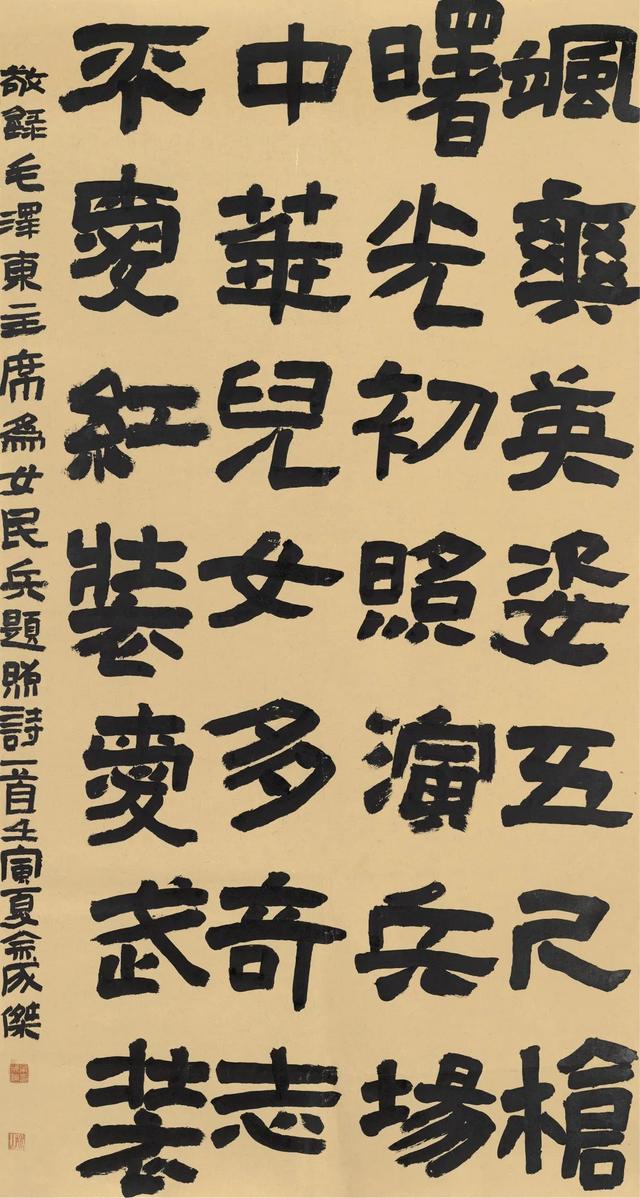 颯爽英姿五尺槍
曙光初照演兵場
中華兒女多奇志
不愛紅裝愛武裝
敬錄毛澤東主席為女民兵題照詩一首壬寅夏余成傑